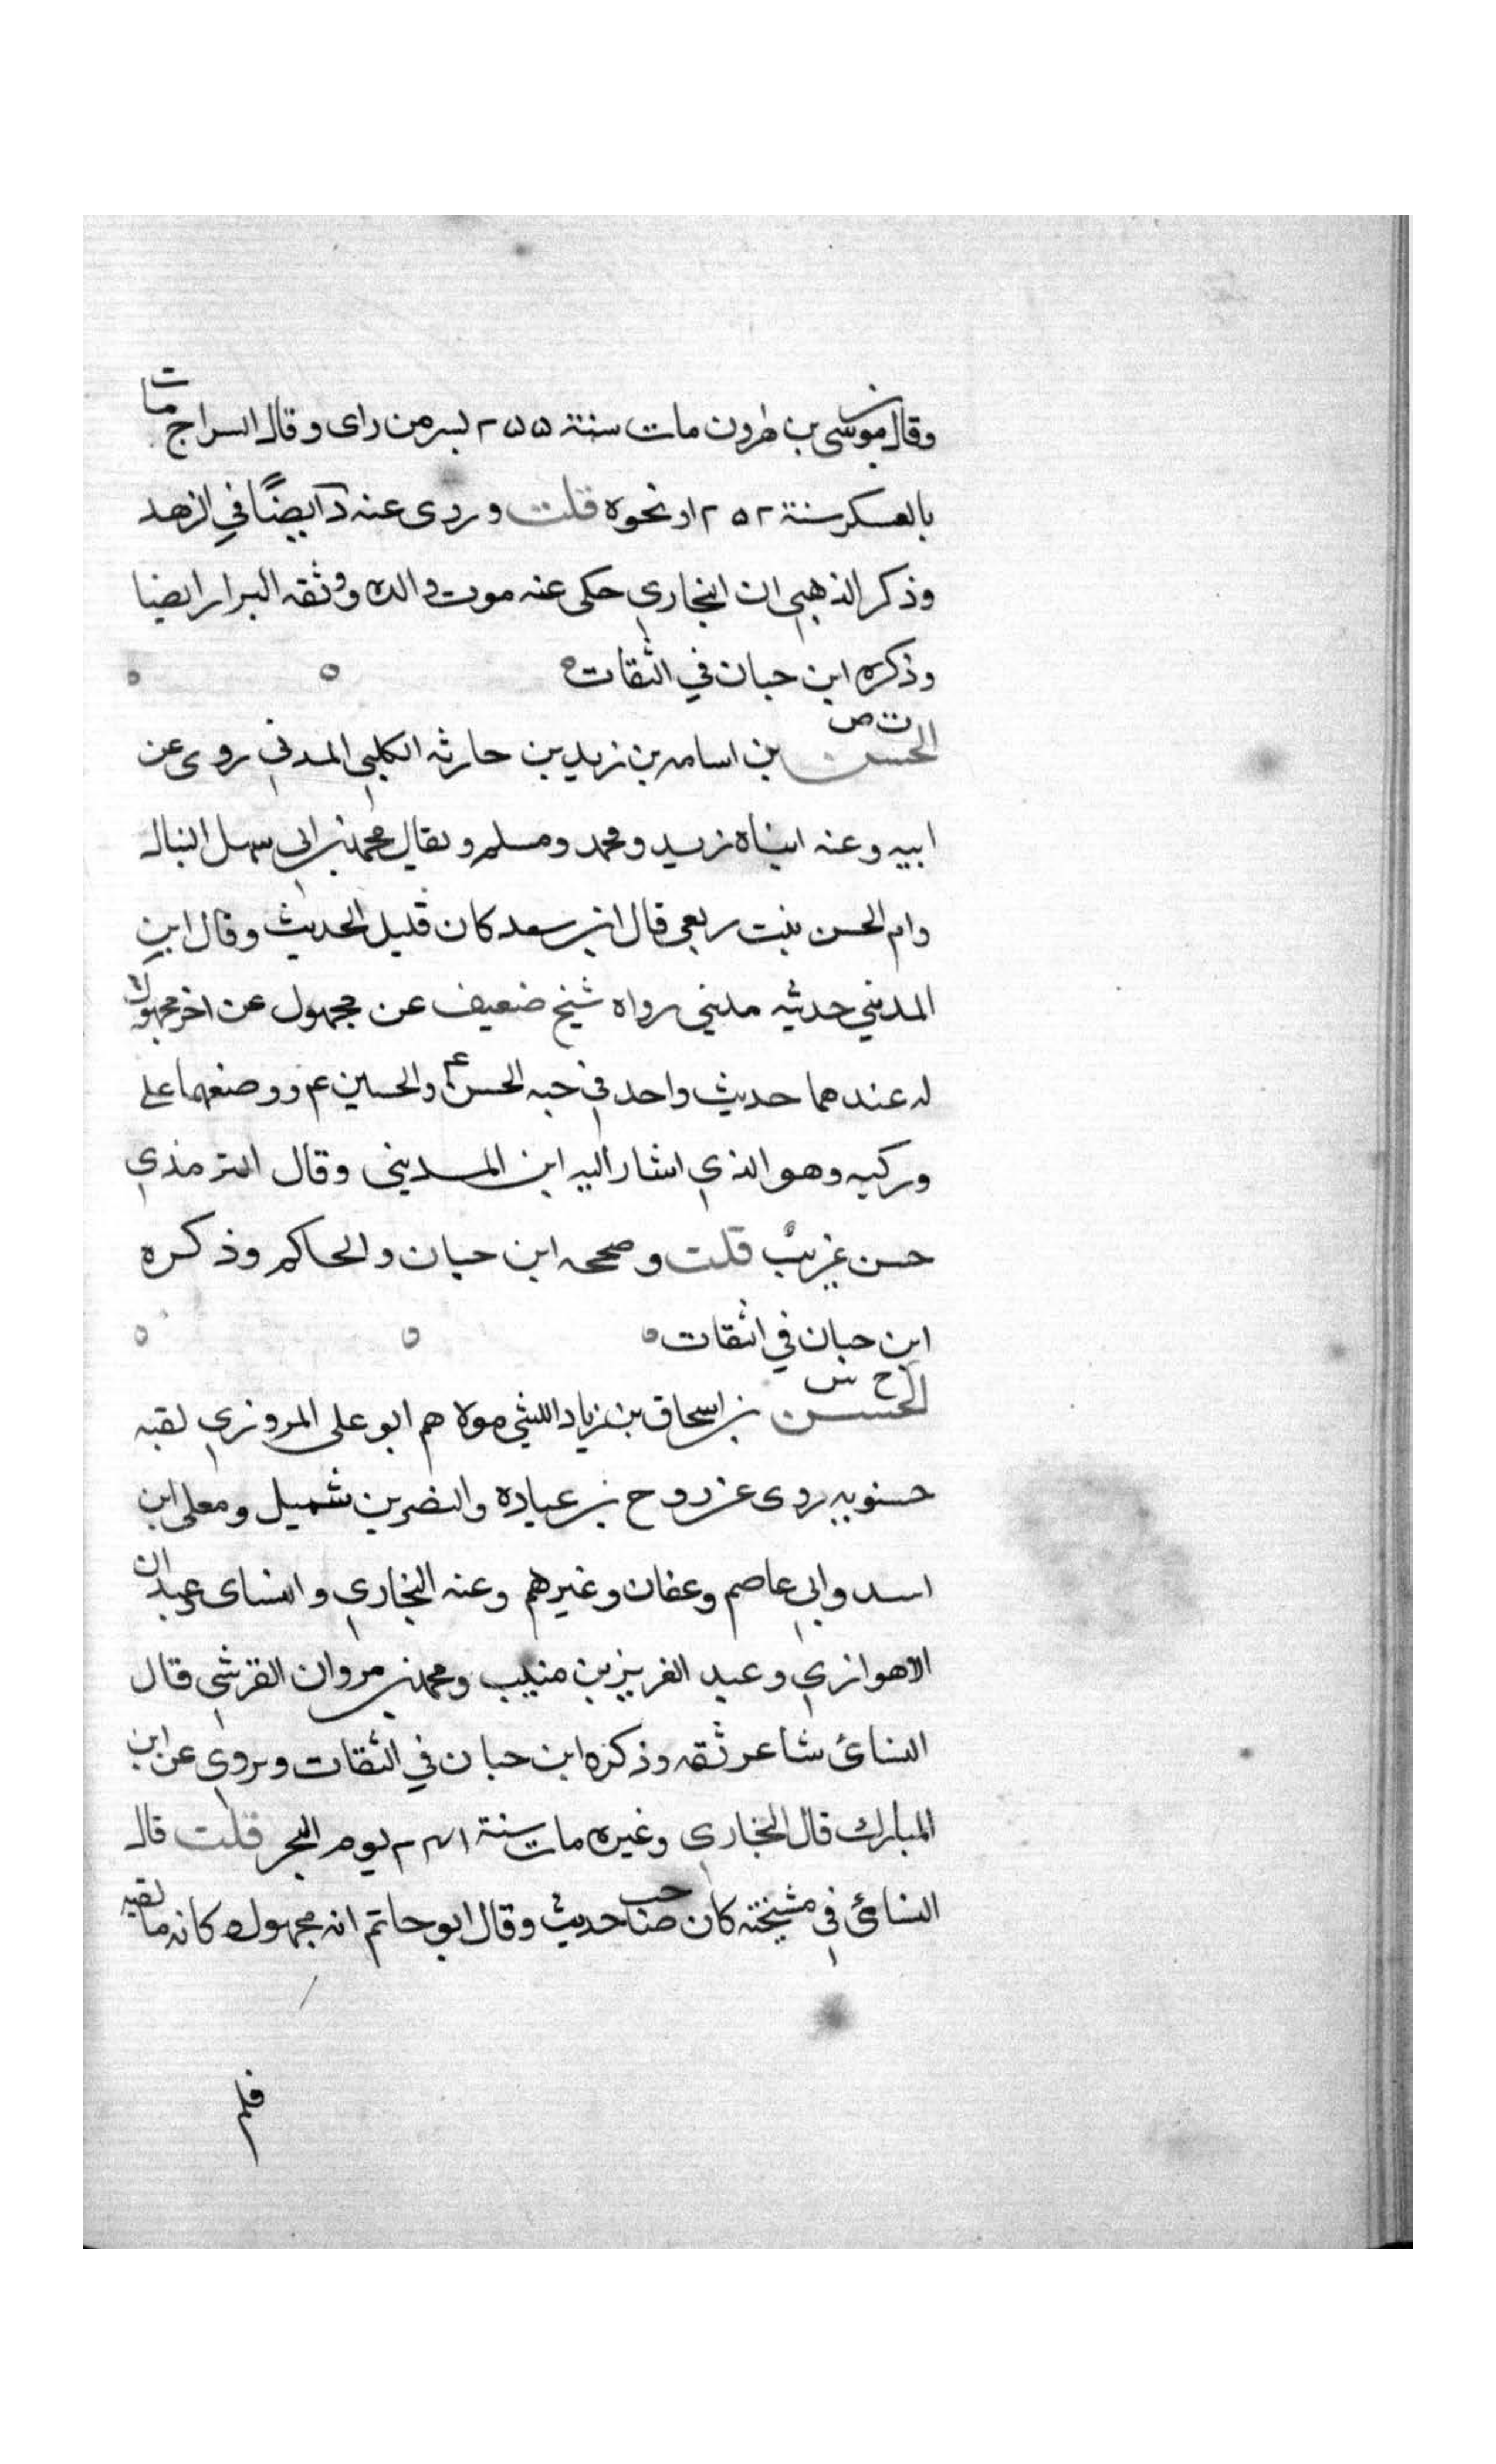 وقال موسى بن هرون مات سنة ٢٥٥ بسر من راى وقال السراج مات
بالعسكر سنة ٢٥٢ او نحوه قلت وروى عنه د ايضًا في الزهد
وذكر الذهبي ان البخاري حكى عنه موت والده ووثقه البزار ايضا
وذكره ابن حبان في الثقات
ت ص
الحسن بن اسامه بن زيد بن حارثه الكلبي المدني روى عن
ابيه وعنه ابناه زيد ومحمد ومسلم ويقال محمد بن ابي سهل النبال
وام الحسن بنت ربعي قال ابن سعد كان قليل الحديث وقال ابن
المديني حديثه مديني رواه شيخ ضعيف عن مجهول عن اخر مجهول
له عندهما حديث واحد في حبه الحسن ع م والحسين ع م ووضعهما على
وركيه وهو الذي اشار اليه ابن المديني وقال الترمذي
حسن غريبٌ قلت وصححه ابن حبان والحاكم وذكره
ابن حبان في الثقات
خ س
الحسن بن اسحاق بن زياد الليثي مولاهم ابو على المروزي لقبه
حسنويه روى عن روح بن عباده والنضر بن شميل ومعلى ابن
اسد وابي عاصم وعفان وغيرهم وعنه البخاري والنساى وعبدان
الاهوازي وعبد العزيز بن منيب ومحمد بن مروان القرشي قال
النسائ شاعر ثقه وذكره ابن حبان في الثقات ويروي عن ابن
المبارك قال البخاري وغيره مات سنة ٢٤١ يوم النحر قلت قال
النسائي في مشيخته كان صاحب حديث وقال ابو حاتم انه مجهول كانه ما لقيه